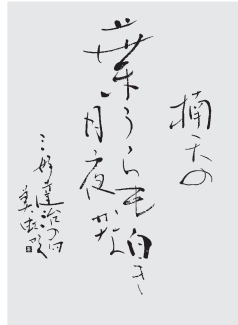 楠天の
葉うらも白き
月夜かな
三好達治の句